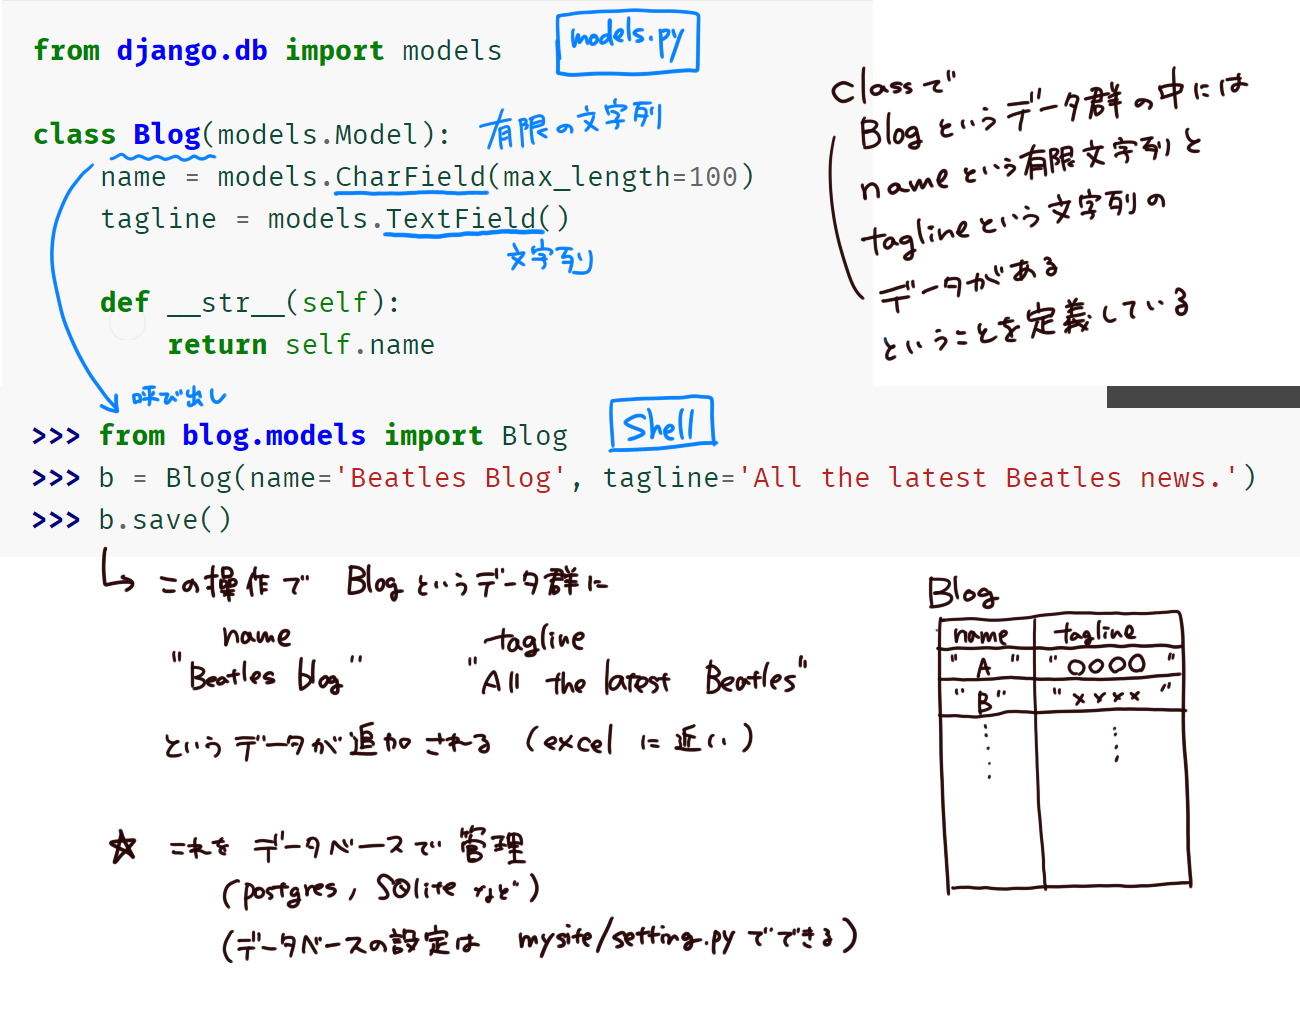 from django.db import models
models.py
class Blog(models.Model):
有限の文字列
name = models.CharField(max_length=100)
tagline = models.TextField()
文字列
def __str__(self):
return self.name
classで
Blogというデータ群の中には
nameという有限文字列と
taglineという文字列の
データがある
ということを定義している
呼び出し
Shell
>>> from blog.models import Blog
>>> b = Blog(name='Beatles Blog', tagline='All the latest Beatles news.')
>>> b.save()
この操作で Blogというデータ群に
name tagline
"Beatles blog" "All the latest Beatles"
というデータが追加される (excelに近い)
☆ これをデータベースで管理
(postgres, SQlite など)
(データベースの設定は mysite/setting.pyでできる)
Blog
name tagline
"A" "○○○○"
"B" "××××"